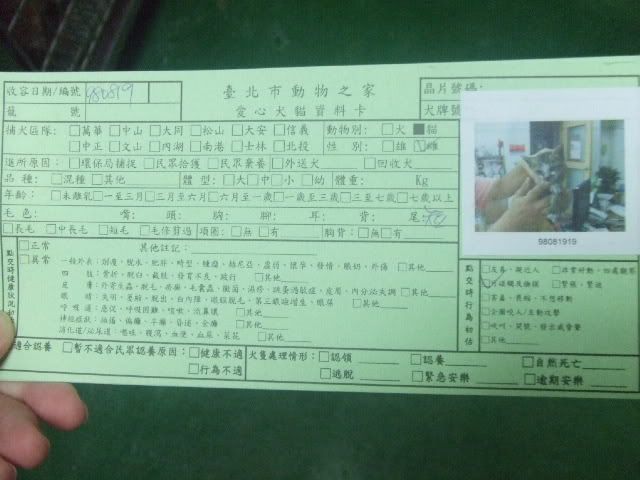 收容日期/編號 980819
臺北市動物之家
晶片號碼:
籠 號
愛心犬貓資料卡
犬牌號
捕犬區隊: □萬華 □中山 □大同 □松山 □大安 □信義 動物別: □犬 ■貓
□中正 □文山 □內湖 □南港 □士林 □北投 性 別: □雄 ☑雌
進所原因: □環保局捕捉 □民眾拾獲 □民眾棄養 □外送犬 □回收犬
品 種: □混種 □其他 體 型: □大 □中 □小 □幼 體重: Kg
年齡: □未離乳 □一至三月 □三月至六月 □六月至一歲 □一歲至三歲 □三至七歲 □七歲以上
毛 色: 嘴: 頭: 胸: 腳: 耳: 背: 尾:
□長毛 □中長毛 □短毛 □毛修剪過 項圈: □無 □有 胸背: □無 □有
98081919
點交時健康狀況初
□正常
□異常
其他註記:
一般外表: 別瘦、脫水、肥胖、畸型、腫瘤、赫尼亞、虛弱、懷孕、發情、眼奶、外傷 □其他
四 肢: 骨折、脫臼、截肢、發育不良、跛行 □其他
皮 膚: 外寄生蟲、脫毛、疥癬、毛囊蟲、黴菌、濕疹、跳蚤過敏症、皮屑、內分泌失調 □其他
眼 睛: 失明、萎縮、脫出、白內障、眼瞼脫毛、第三眼瞼增生、眼屎 □其他
呼 吸 道: 急促、呼吸困難、咳嗽、流鼻膿 □其他
神經症狀: 抽搐、偏癱、半癱、昏迷、全癱 □其他
消化道/泌尿道: 嘔吐、腹瀉、血便、血尿、菜花 □其他
點交時行為初估
□友善、親近人 □非常好動、四處觀察
☑可碰觸及撫摸 □緊張、緊迫
□害羞、畏縮、不想移動
□企圖咬人/主動攻擊
□吠叫、哭號、發出威脅聲
□其他
適合認養 □暫不適合民眾認養原因: □健康不適 犬隻處理情形: □認領 □認養 □自然死亡
□行為不適 □逃脫 □緊急安樂 □逾期安樂